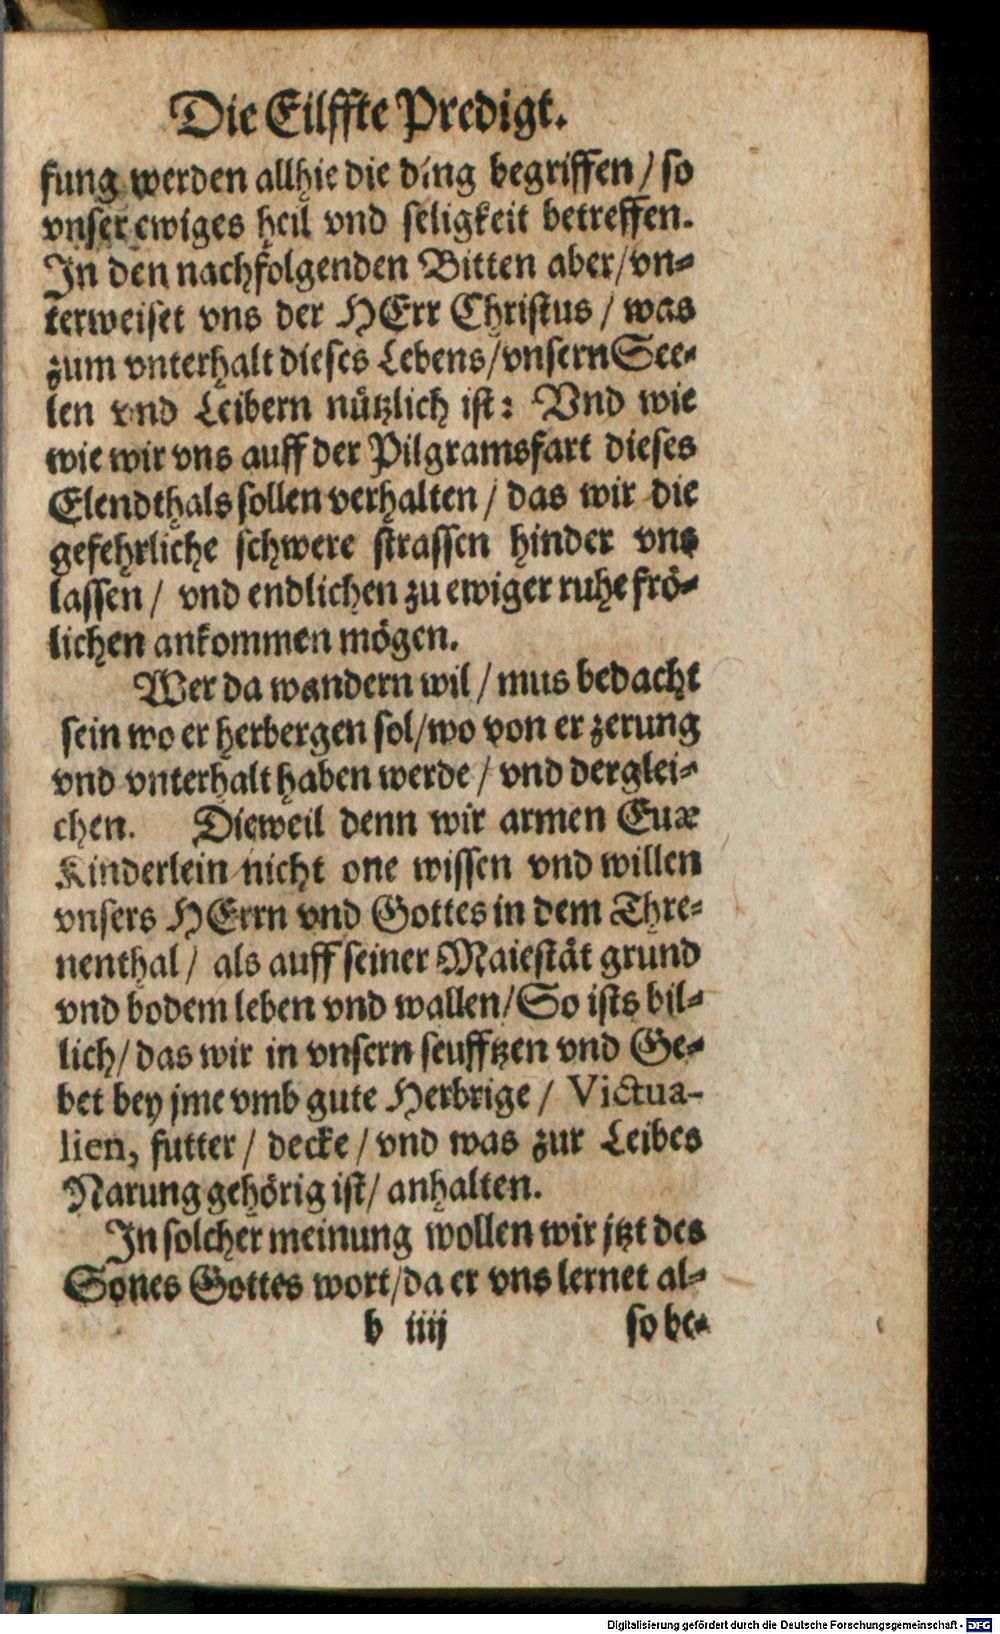 Die Eilffte Predigt.
fung werden allhie die ding begriffen / so
vnser ewiges heil vnd seligkeit betreffen.
In den nachfolgenden Bitten aber / vn-
terweiset vns der HErr Christus / was
zum vnterhalt dieses Lebens / vnsern See-
len vnd Leibern nützlich ist: Vnd wie
wie wir vns auff der Pilgramsfart dieses
Elendthals sollen verhalten / das wir die
gefehrliche schwere strassen hinder vns
lassen / vnd endlichen zu ewiger ruhe frö-
lichen ankommen mögen.
Wer da wandern wil / mus bedacht
sein wo er herbergen sol / wo von er zerung
vnd vnterhalt haben werde / vnd derglei-
chen. Dieweil denn wir armen Euæ
Kinderlein nicht one wissen vnd willen
vnsers HErrn vnd Gottes in dem Thre-
nenthal / als auff seiner Maiestät grund
vnd bodem leben vnd wallen / So ists bil-
lich / das wir in vnsern seufftzen vnd Ge-
bet bey jme vmb gute Herbrige / Victua-
lien, futter / decke / vnd was zur Leibes
Narung gehörig ist / anhalten.
In solcher meinung wollen wir jtzt des
Sones Gottes wort / da er vns lernet al-
b iiij so be-
Digitalisierung gefördert durch die Deutsche Forschungsgemeinschaft - DFG